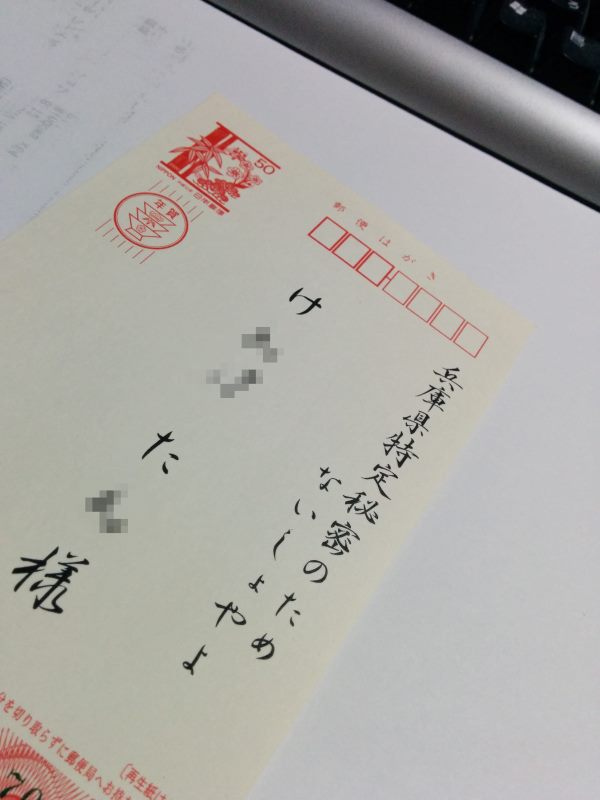 50
NIPPON 日本郵便
年賀
郵便はがき
兵庫県特定秘密のため
ないしょやよ
け
た
様
を切り取らずに郵便局へお持
〔再生紙は
70